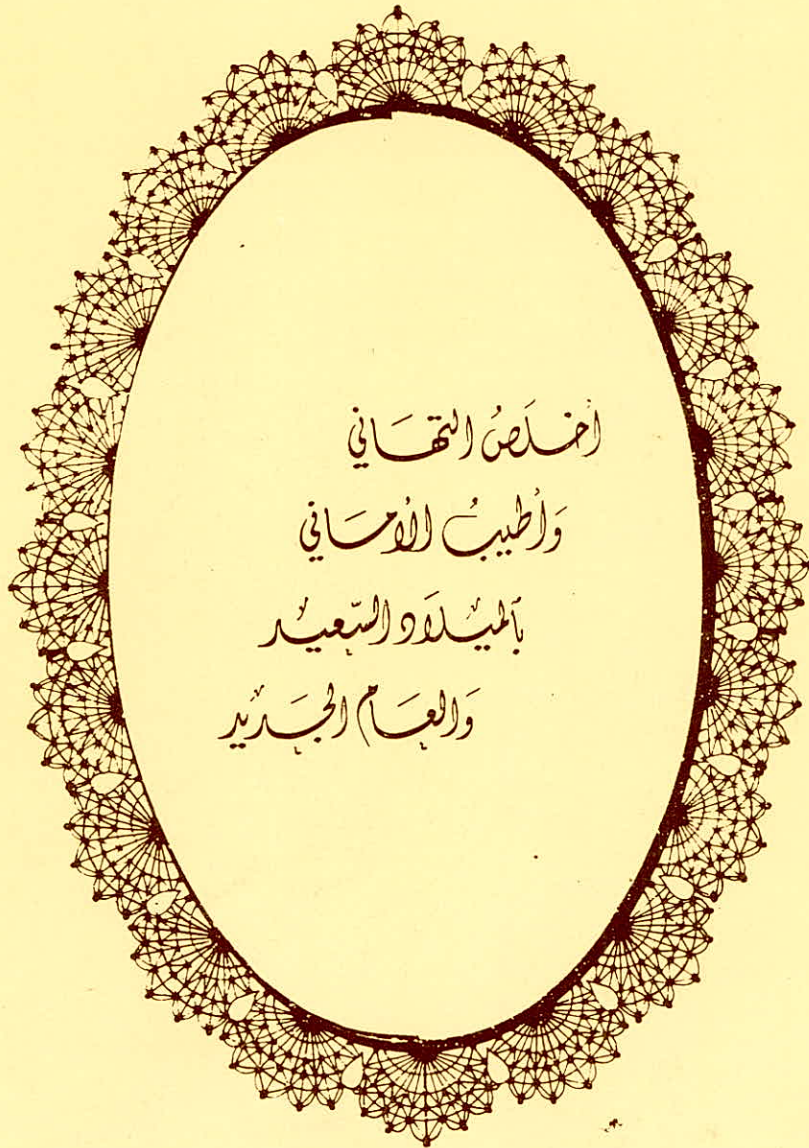 أخلَصُ التهَاني
وَأطيبُ الأمسَاني
بالميلاد السّعيد
وَالعَام الجَديد